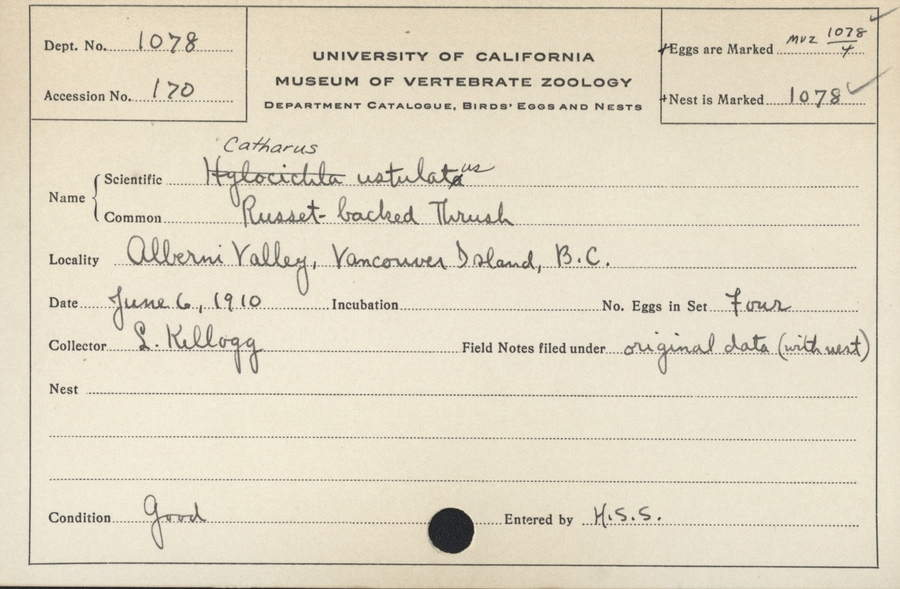 Dept. No. 1078
Accession No. 170
UNIVERSITY OF CALIFORNIA
MUSEUM OF VERTEBRATE ZOOLOGY
DEPARTMENT CATALOGUE, BIRDS' EGGS AND NESTS
Eggs are Marked MVZ 1078/4 ✓
Nest is Marked 1078 ✓
Catharus
Name { Scientific Hylocichla ustulata us
Common Russet-backed Thrush
Locality Alberni Valley, Vancouver Island, B.C.
Date June 6, 1910 Incubation No. Eggs in Set Four
Collector L. Kellogg Field Notes filed under original data (with nest)
Nest
Condition Good Entered by H.S.S.